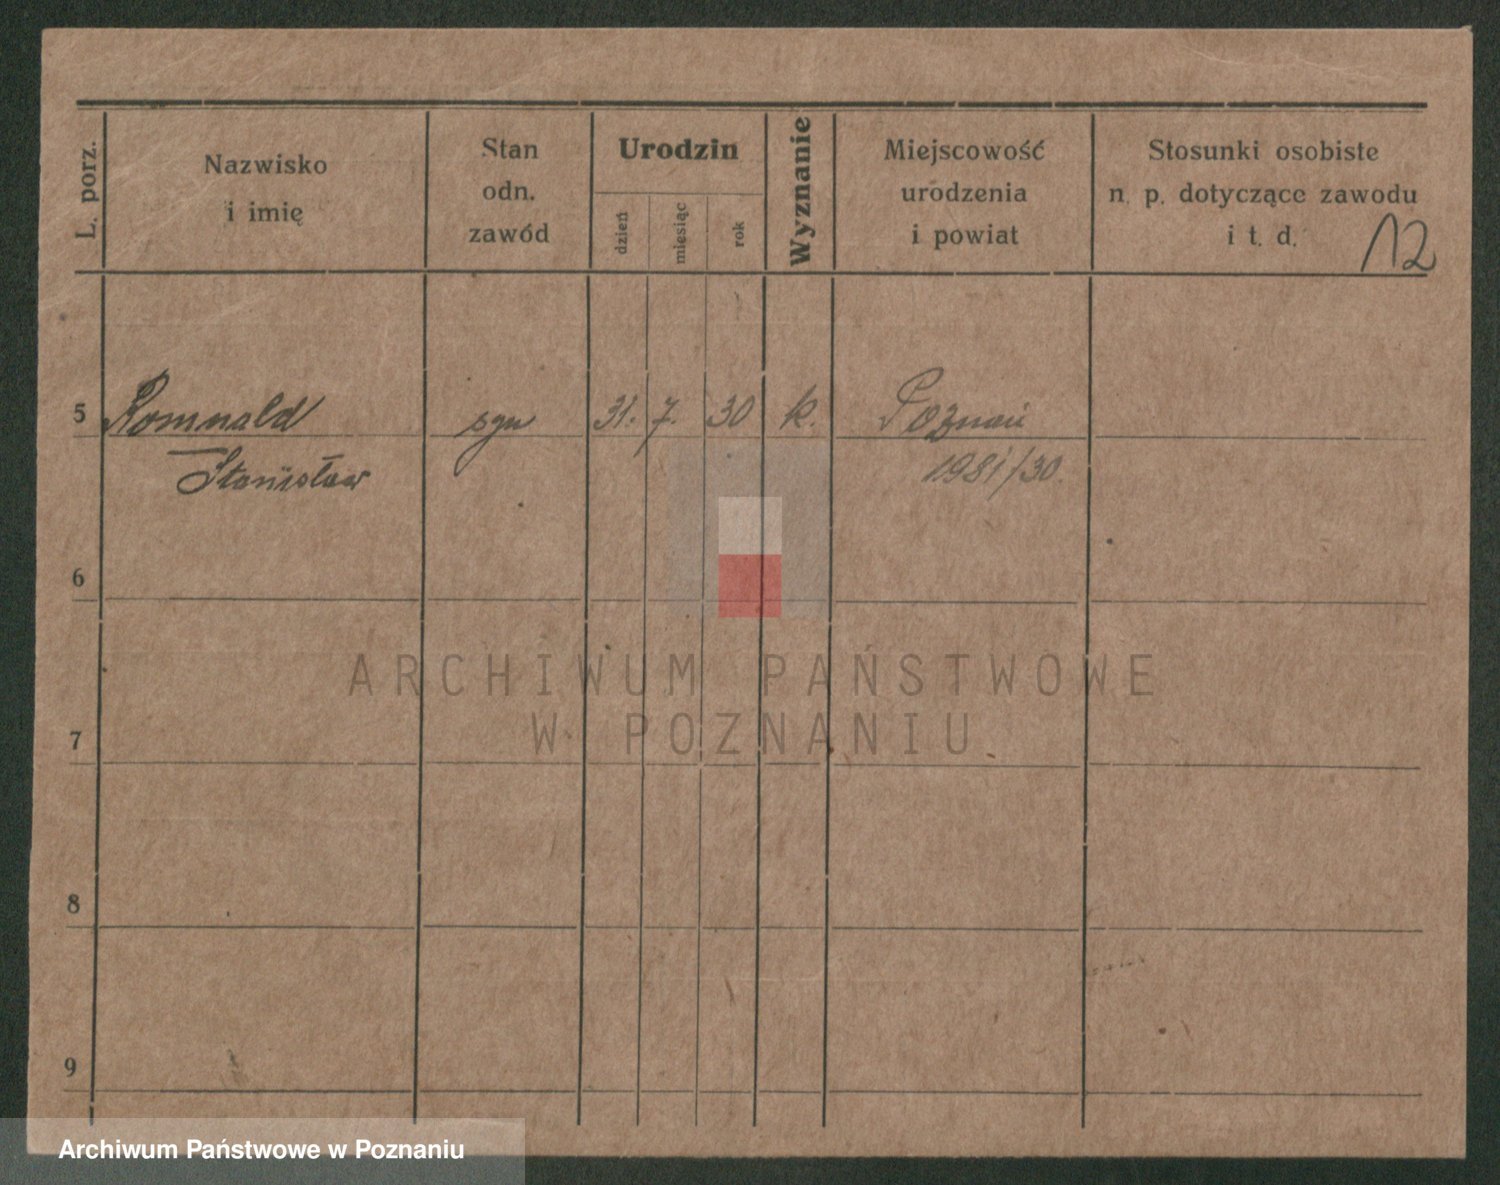 L. porz.
Nazwisko
i imię
Stan
odn.
zawód
Urodzin
dzień
miesiąc
rok
Wyznanie
Miejscowość
urodzenia
i powiat
Stosunki osobiste
n. p. dotyczące zawodu
i t. d.
12
5 Romuald syn 31. 7. 30 k. Poznań
Stanisław 1981/30.
6
ARCHIWUM PAŃSTWOWE
W POZNANIU
7
8
9
Archiwum Państwowe w Poznaniu